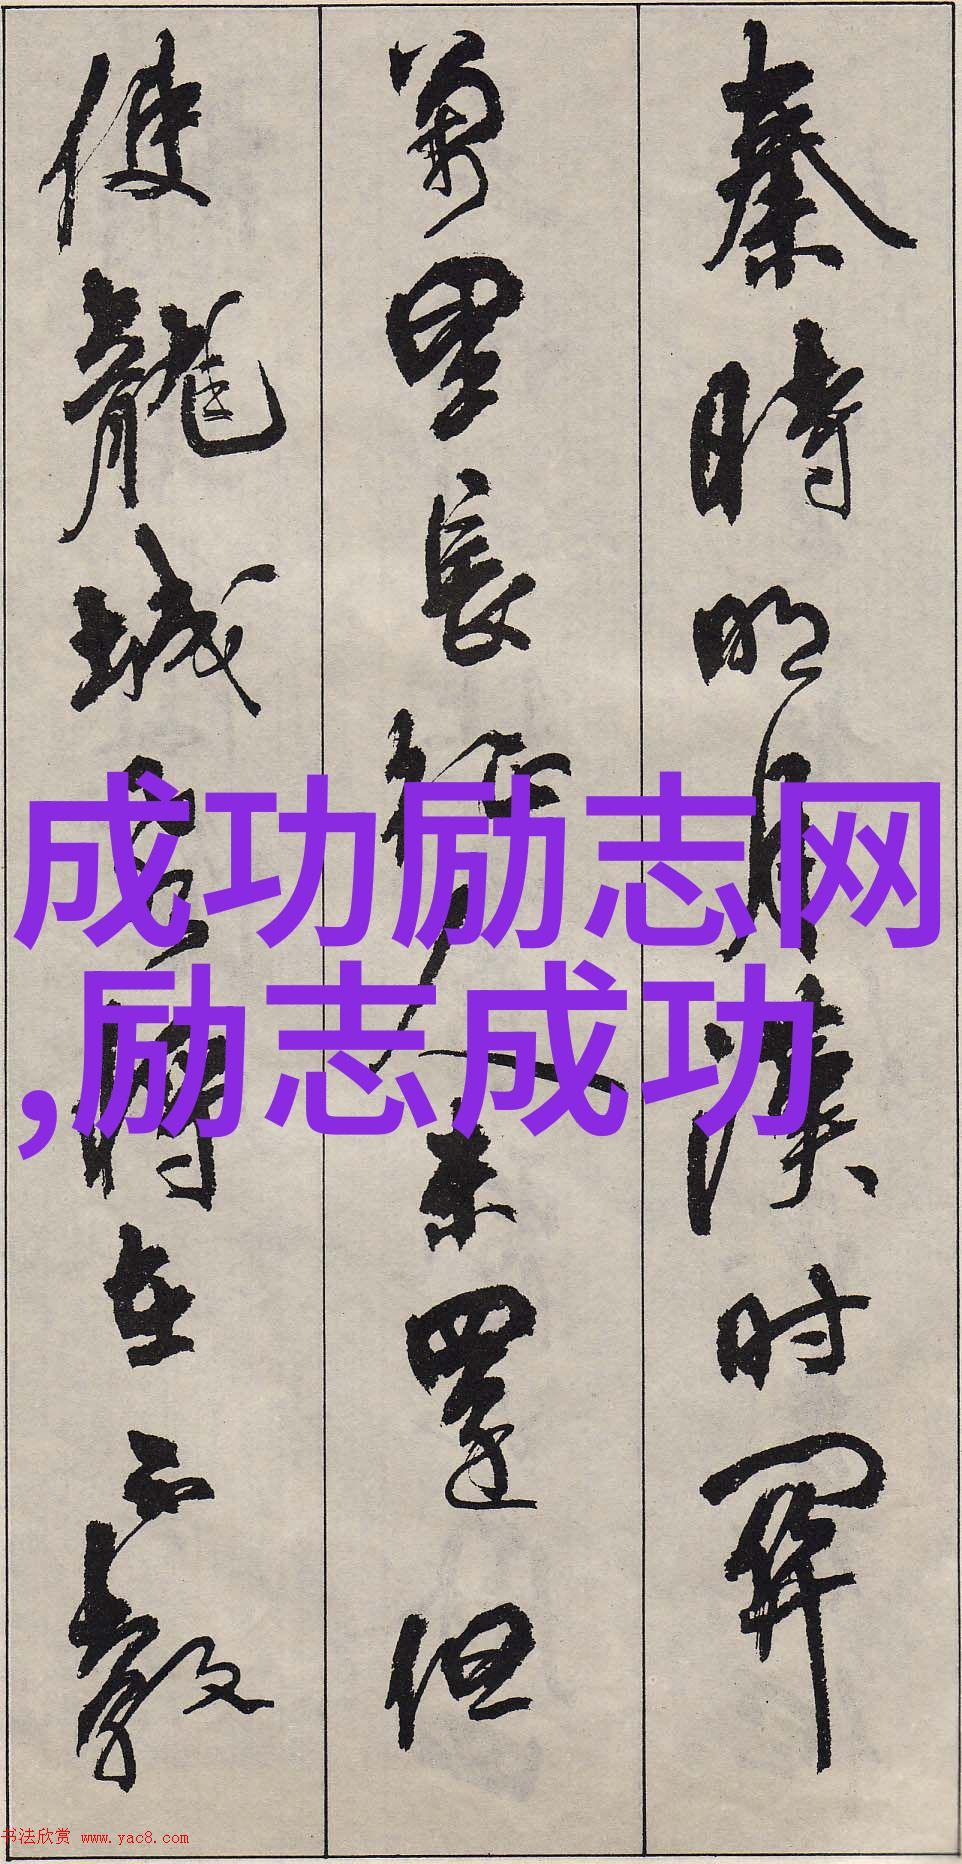 秦時明月漢时関
萬里長征人未還但
使龍城飛将在不教
成功励志网
,励志成功
书法欣赏 www.yac8.com